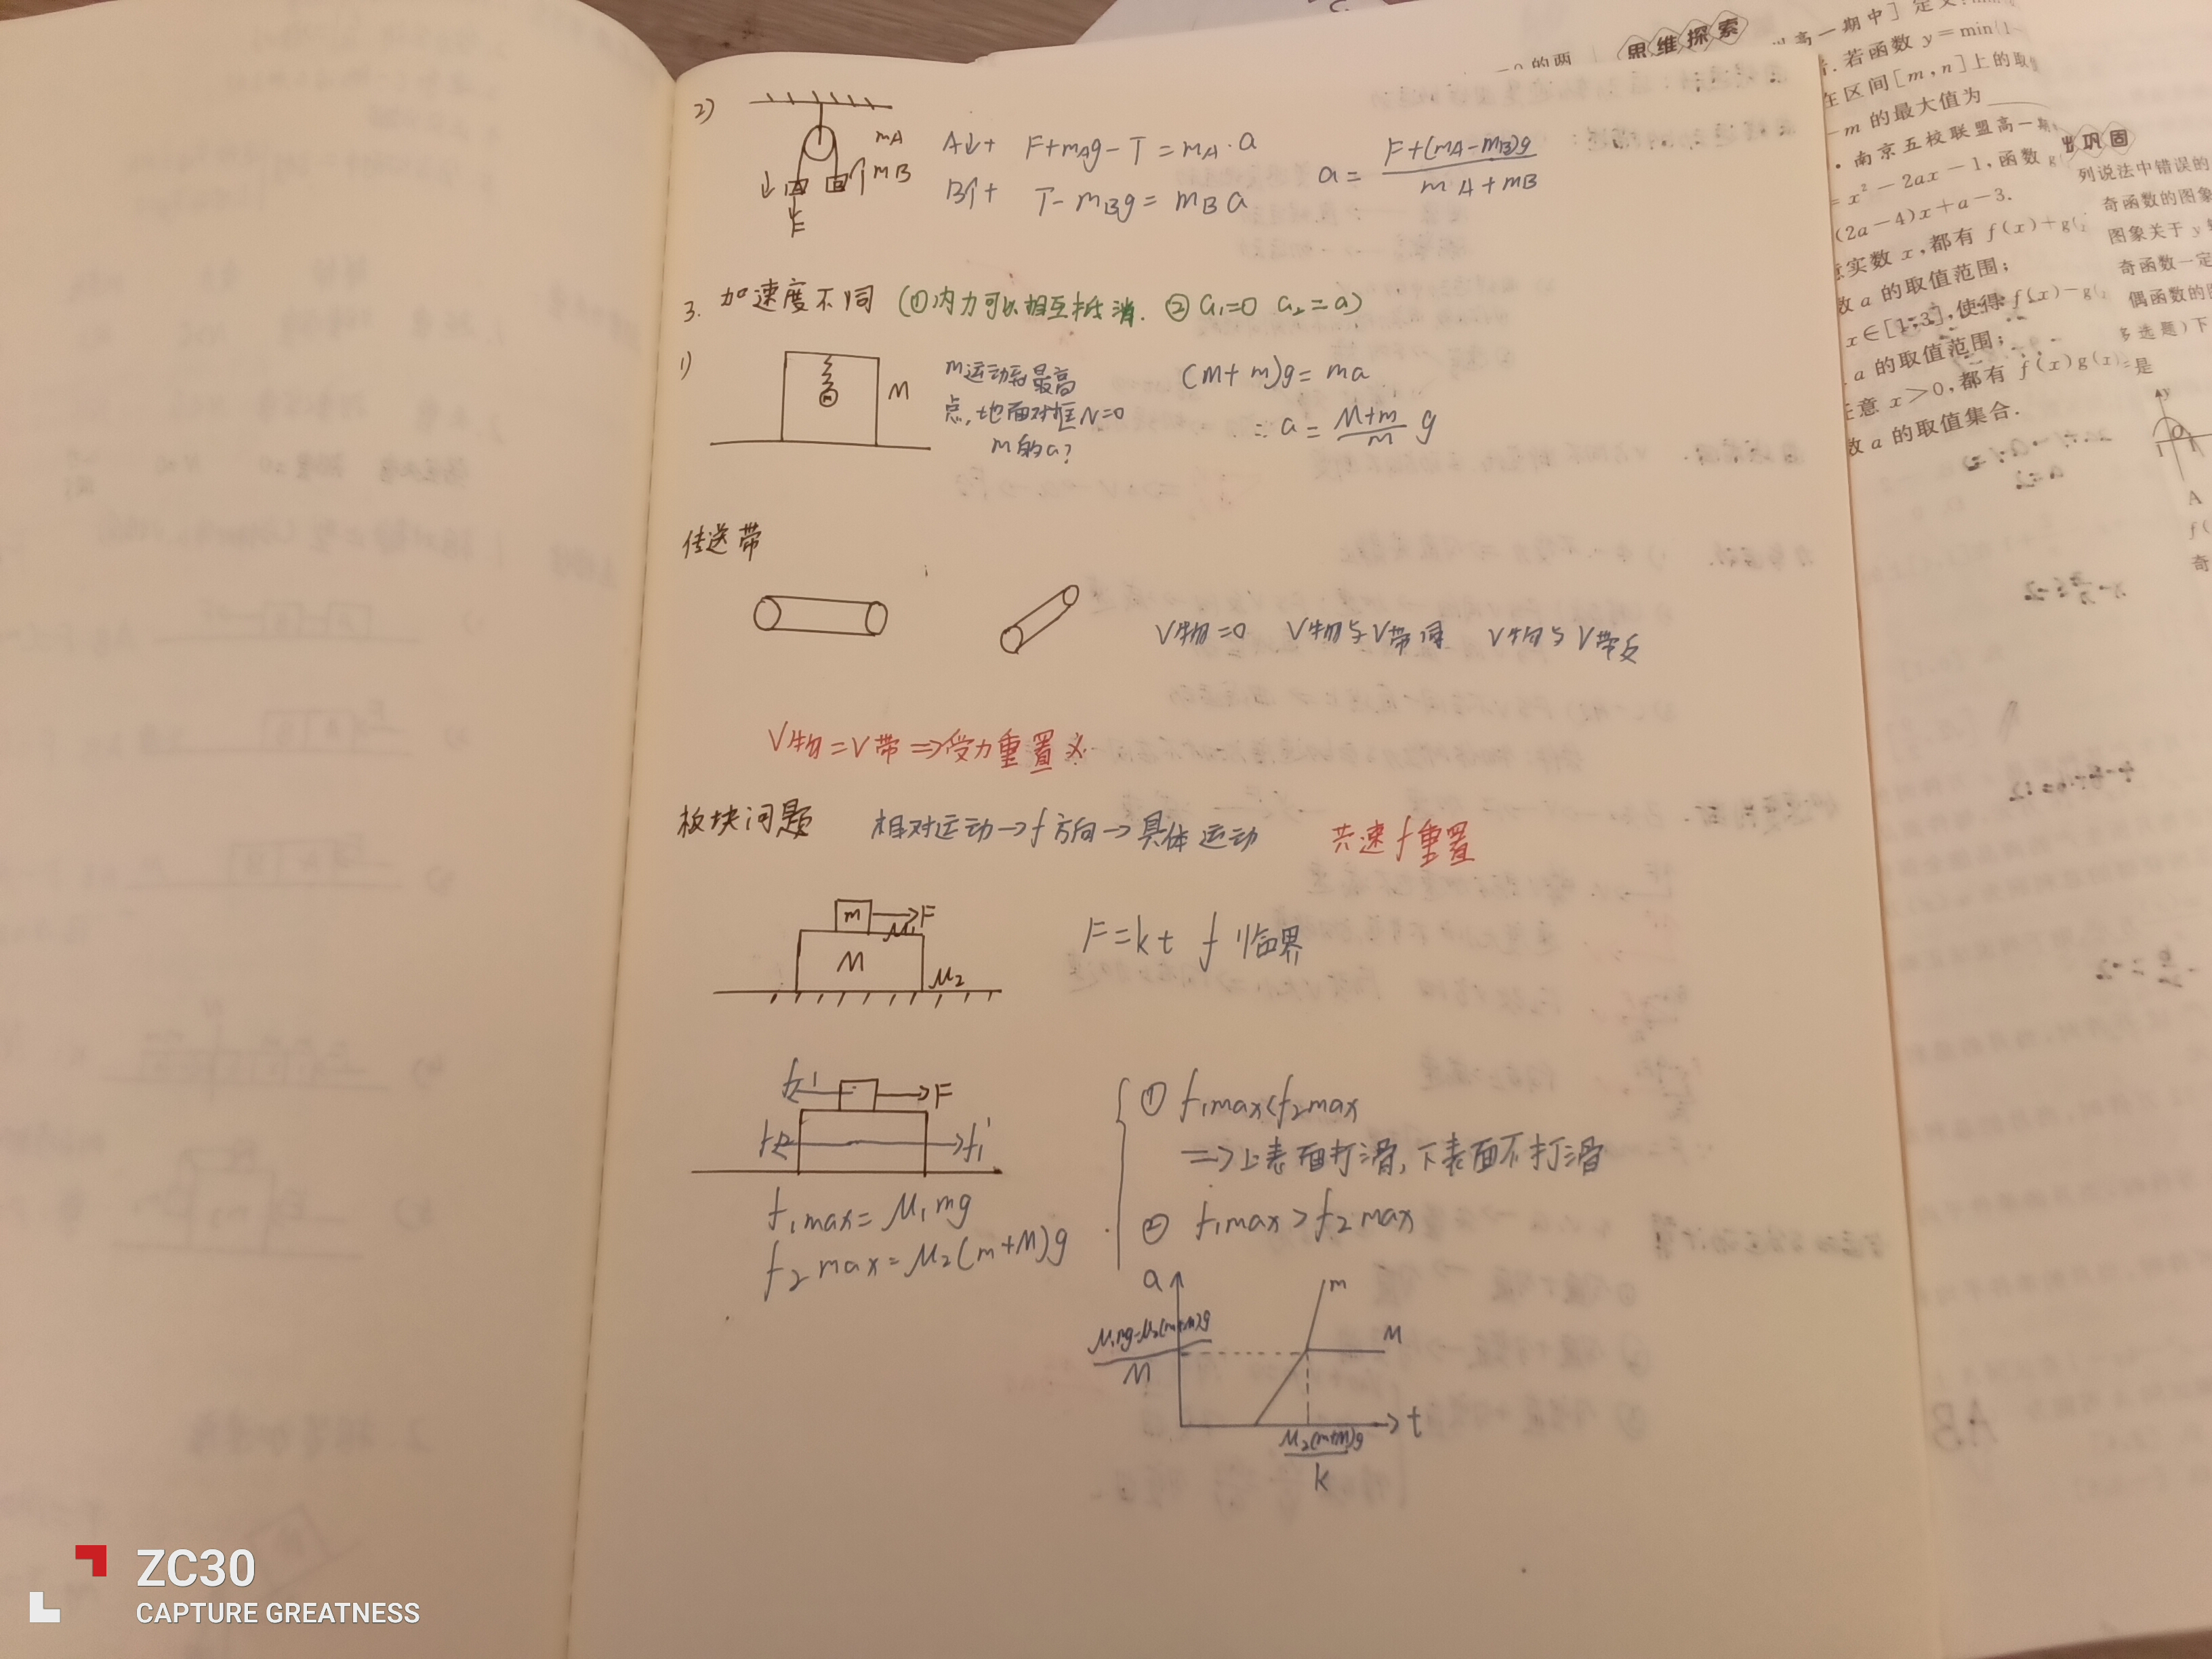 2)
mA
mB
F
A↓+ F+mAg-T=mA·a
B↑+ T-mBg=mBa
a=\frac{F+(mA-mB)g}{mA+mB}
3. 加速度不同 (①内力可以相互抵消. ② a₁=0 a₂=a)
1)
m
M
m运动到最高
点,地面对框N=0
m的a?
(M+m)g=ma
∴a=\frac{M+m}{m}g
传送带
V物=0 V物与V带同 V物与V带反
V物=V带=>受力重置
板块问题 相对运动→f方向→具体运动 共速f重置
m F
μ₁
M
μ₂
F=kt f临界
f₁ F
f₂ f₁'
f₁max=μ₁mg
f₂max=μ₂(m+M)g
① f₁max<f₂max
=>上表面打滑,下表面不打滑
② f₁max>f₂max
a m
\frac{μ₁mg-μ₂(m+M)g}{M}
M
t
\frac{μ₂(m+M)g}{k}
思维探索
高一期中]
若函数 y=min(1-
在区间[m,n]上的取值
-m 的最大值为
南京五校联盟高一期
=x²-2ax-1,函数 g(
(2a-4)x+a-3.
意实数 x,都有 f(x)+g(
数 a 的取值范围;
x∈[1,3],使得 f(x)-g(
a 的取值范围;
任意 x>0,都有 f(x)g(x)
数 a 的取值集合.
巩固
列说法中错误的
奇函数的图象
图象关于 y
奇函数一定
偶函数的图
多选题)下
是
y
O
1
A
f(
奇
ZC30
CAPTURE GREATNESS